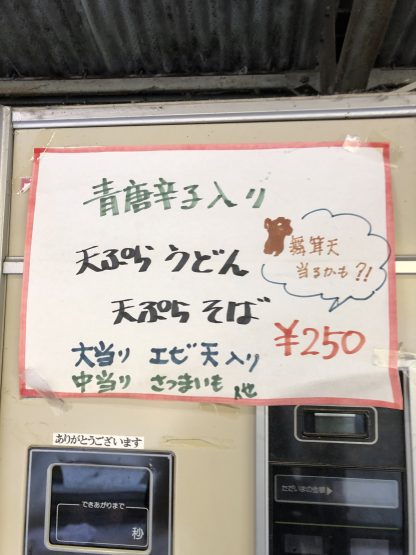 青唐辛子入り
舞茸天
当るかも?!
天ぷら うどん
天ぷら そば
¥250
大当り エビ天入り
中当り さつまいも 他
ありがとうございます
できあがりまで
秒
ただいまの金額